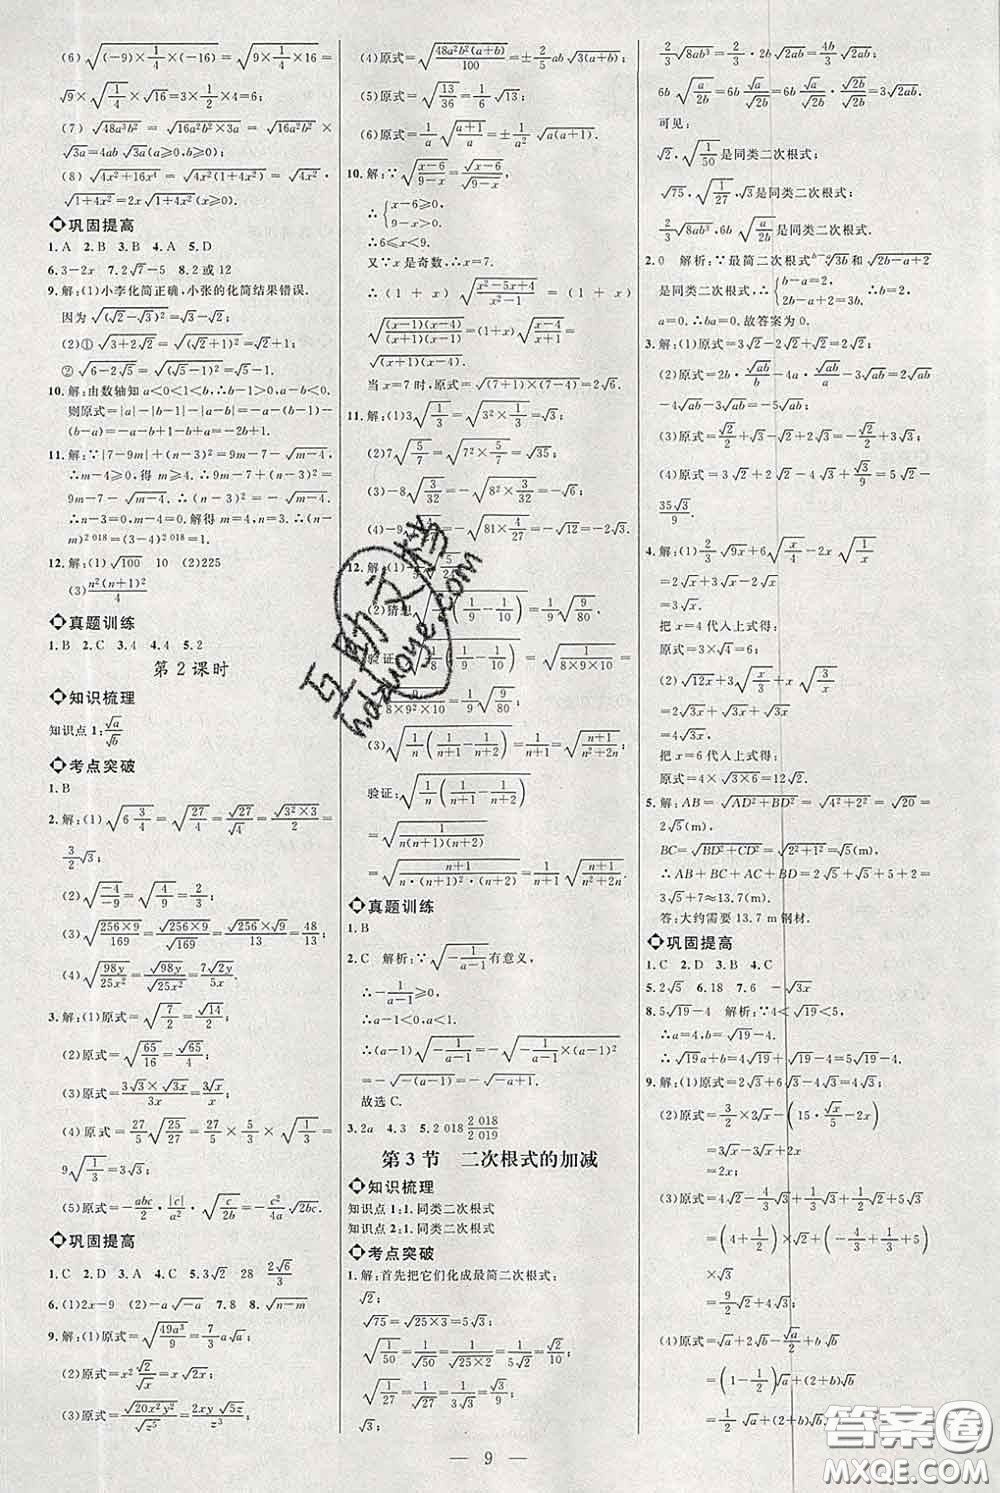 (6) √((-9)×1/4×(-16)) = √(9×1/4×16) =
√9 × √(1/4) × √16 = 3×1/2×4=6;
(7) √(48a³b²) = √(16a²b²×3a) = √(16a²b²) ×
√(3a)=4ab√(3a)(a≥0,b≥0);
(8) √(4x²+16x⁴) = √(4x²(1+4x²)) = √(4x²) ·
√(1+4x²)=2x√(1+4x²)(x≥0).
巩固提高
1.A 2.B 3.B 4.A 5.D
6.3-2x 7.2√7-5 8.2或12
9.解:(1)小李化简正确,小张的化简结果错误.
因为√((√2-√3)²)=√3-√2;
(2)① √(3+2√2)=√((√2+1)²)=√2+1.
② √(6-2√5)=√((√5-1)²)=√5-1.
10.解:由数轴知a<0<1<b,∴b-1>0,a-b<0.
则原式=|a|-|b-1|-|a-b|=-a-(b-1)-
(b-a)=-a-b+1-b+a=-2b+1.
11.解:∵|7-9m|+(n-3)²=9m-7-√(m-4).
∴m-4≥0,得 m≥4.∴9m-7+(n-3)²=
9m-7-√(m-4).∴(n-3)²=-√(m-4).
∴n-3=0,m-4=0.解得m=4,n=3.∴(n-
m)^2 018=(3-4)^2 018=1.
12.解:(1)√100 10 (2)225
(3) n²(n+1)²/4
真题训练
1.B 2.C 3.4 4.4 5.2
第2课时
知识梳理
知识点1:√a/√b
考点突破
1.B
2.解:(1)√(6 3/4)=√(27/4)=√27/√4=√(3²×3)/2=
3/2√3;
(2)√(-4/-9)=√(4/9)=√4/√9=2/3;
(3)√(256×9/169)=√(256×9)/√169=√256×√9/13=48/13;
(4)√(98y/25x²)=√(98y)/√(25x²)=7√(2y)/5x.
3.解:(1)原式=√(7/2)=√14/2;
(2)原式=√(65/16)=√65/4;
(3)原式=3√3×√(3x)/3x=3√x/x;
(4)原式=27/5√(25/27)=27/5×5/3×√(3/27)=
9√(1/3)=3√3;
(5)原式=-abc/5·|c|/a²·√(c/2b)=-c²/4a√(2bc).
巩固提高
1.C 2.D 3.A 4.C 5.3√2 28 2√6/3
6.(1)2x-9 (2)-a√(-a) 7.8 8.√(n-m)
9.解:(1)原式=√(49a³/9)=7/3a√a;
(2)原式=x²√2/√x=x√(2x);
(3)原式=√(20x²y²)/√(z⁵)=2xy√(5z)/z³;
(4)原式=√(48a²b²(a+b)/100)=±2/5ab√(3(a+b));
(5)原式=√(13/36)=1/6√13;
(6)原式=1/a√((a+1)/a)=±1/a²√(a(a+1)).
10.解:∵√((x-6)/(9-x))=√(x-6)/√(9-x),
∴{x-6≥0, 9-x>0.
∴6≤x<9.
又∵x是奇数,∴x=7.
∴(1+x)√((x²-5x+4)/(x²-1))=(1+x)
√((x-1)(x-4)/((x+1)(x-1)))=(1+x)√((x-4)/(x+1))=
√((x+1)(x-4)).
当x=7时,原式=√((7+1)(7-4))=2√6.
11.解:(1)3√(1/3)=√(3²×1/3)=√3;
(2)7√(5/7)=√(7²×5/7)=√35;
(3)-8√(3/32)=-√(8²×3/32)=-√6;
(4)-9√(4/27)=-√(81×4/27)=-√12=-2√3.
12.解:(1)
(2)猜想√(1/8(1/9-1/10))=1/9√(9/80).
验证:√(1/8(1/9-1/10))=√(1/(8×9×10))
=√(9/(8×9²×10))=1/9√(9/80);
(3)√(1/n(1/(n+1)-1/(n+2)))=1/(n+1)√((n+1)/(n²+2n));
验证:√(1/n(1/(n+1)-1/(n+2)))
=√(1/(n(n+1)(n+2)))
=√((n+1)/(n·(n+1)²·(n+2)))=1/(n+1)√((n+1)/(n²+2n)).
真题训练
1.B
2.C 解析:∵√(-1/(a-1))有意义,
∴-1/(a-1)≥0.
∴a-1<0,a<1.
∴(a-1)√(-1/(a-1))=-√(-1/(a-1)×(a-1)²)
=-√(-(a-1))=-√(-a+1).
故选C.
3.2a 4.3 5.2 018 2 018/2 019
第3节 二次根式的加减
知识梳理
知识点1:1.同类二次根式
知识点2:1.同类二次根式
考点突破
1.解:首先把它们化成最简二次根式:
√2;
√75=√(25×3)=5√3;
√(1/50)=1/√50=1/√(25×2)=1/5√2=√2/10;
√(1/27)=1/√27=1/3√3=√3/9;
√3;
2/3√(8ab³)=2/3·2b√(2ab)=4b/3√(2ab);
6b√(a/2b)=6b√(a/2b×2b/2b)=3√(2ab).
可见:
√2,√(1/50)是同类二次根式;
√75,√(1/27),√3是同类二次根式;
2/3√(8ab³),6b√(a/2b)是同类二次根式.
2.0 解析:∵最简二次根式^(b-a)√(3b)和√(2b-a+2)
是同类二次根式,∴{b-a=2, 2b-a+2=3b.
a=0.∴ba=0.故答案为0.
3.解:(1)原式=3√2-2√2+√2=2√2.
(2)原式=2a·√(ab)/b-4a·√(ab)/a
-4√3-3√3=-2√3.
(3)原式=√2/2+√3-√2/2-4√2+2√3=-4√2+3√3.
(4)原式=3√2+2√2-4√3+√3/9=5√2-
35√3/9.
4.解:(1)2/3√(9x)+6√(x/4)-2x√(1/x)
=2√x+3√x-2√x
=3√x.
把x=4代入上式得:
原式=3√4=6.
(2)√(12x)+x√(3/x)+√(3x)
=2√(3x)+√(3x)+√(3x)
=4√(3x).
把x=6代入上式得:
原式=4×√(3×6)=12√2.
5.解:AB=√(AD²+BD²)=√(4²+2²)=√20=
2√5(m),
BC=√(BD²+CD²)=√(2²+1²)=√5(m).
∴AB+BC+AC+BD=2√5+√5+5+2=
3√5+7≈13.7(m).
答:大约需要13.7 m钢材.
巩固提高
1.C 2.D 3.B 4.C
5.2√5 6.18 7.6 -√(3x)
8.5√19-4 解析:∵4<√19<5,
∴a=4,b=√19-4.
∴√19a+b=4√19+√19-4=5√19-4.
9.解:(1)原式=2√3+6√3-4√3=4√3;
(2)原式=3/2×2√x-(15·√x/5-2x)
=3√x-3√x+2x
=2x;
(3)原式=4√2-4/3√3+1/2√2+6/3√3
=(4+1/2)√2+(-4/3+6/3)
×√3
=9/2√2+2/3√3;
(4)原式=√a+2√b-√a/2+b√b
=(1-1/2)√a+(2+b)√b
=1/2√a+(2+b)√b.
9
互助文档
hdzuoye.com
答案圈
MXQE.COM